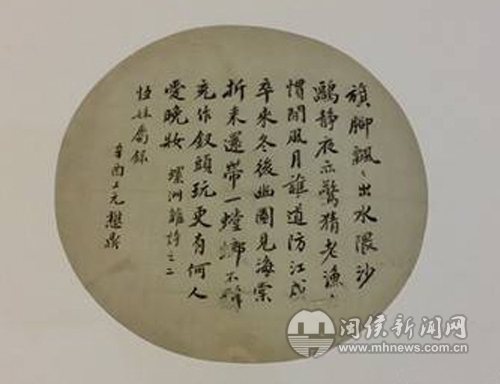 旗脚飄〻出水隈沙
鷗静夜亦驚猜老漁
慣閒風月誰道防江戍
卒来冬後幽園見海棠
折来還帶一螳螂不
充作釵頭玩更有何人
愛晚妝 螺洲雜詩之二
恆妹屬錄
辛酉上元懋鼎
闽侯新闻网
www.mhnews.com.cn